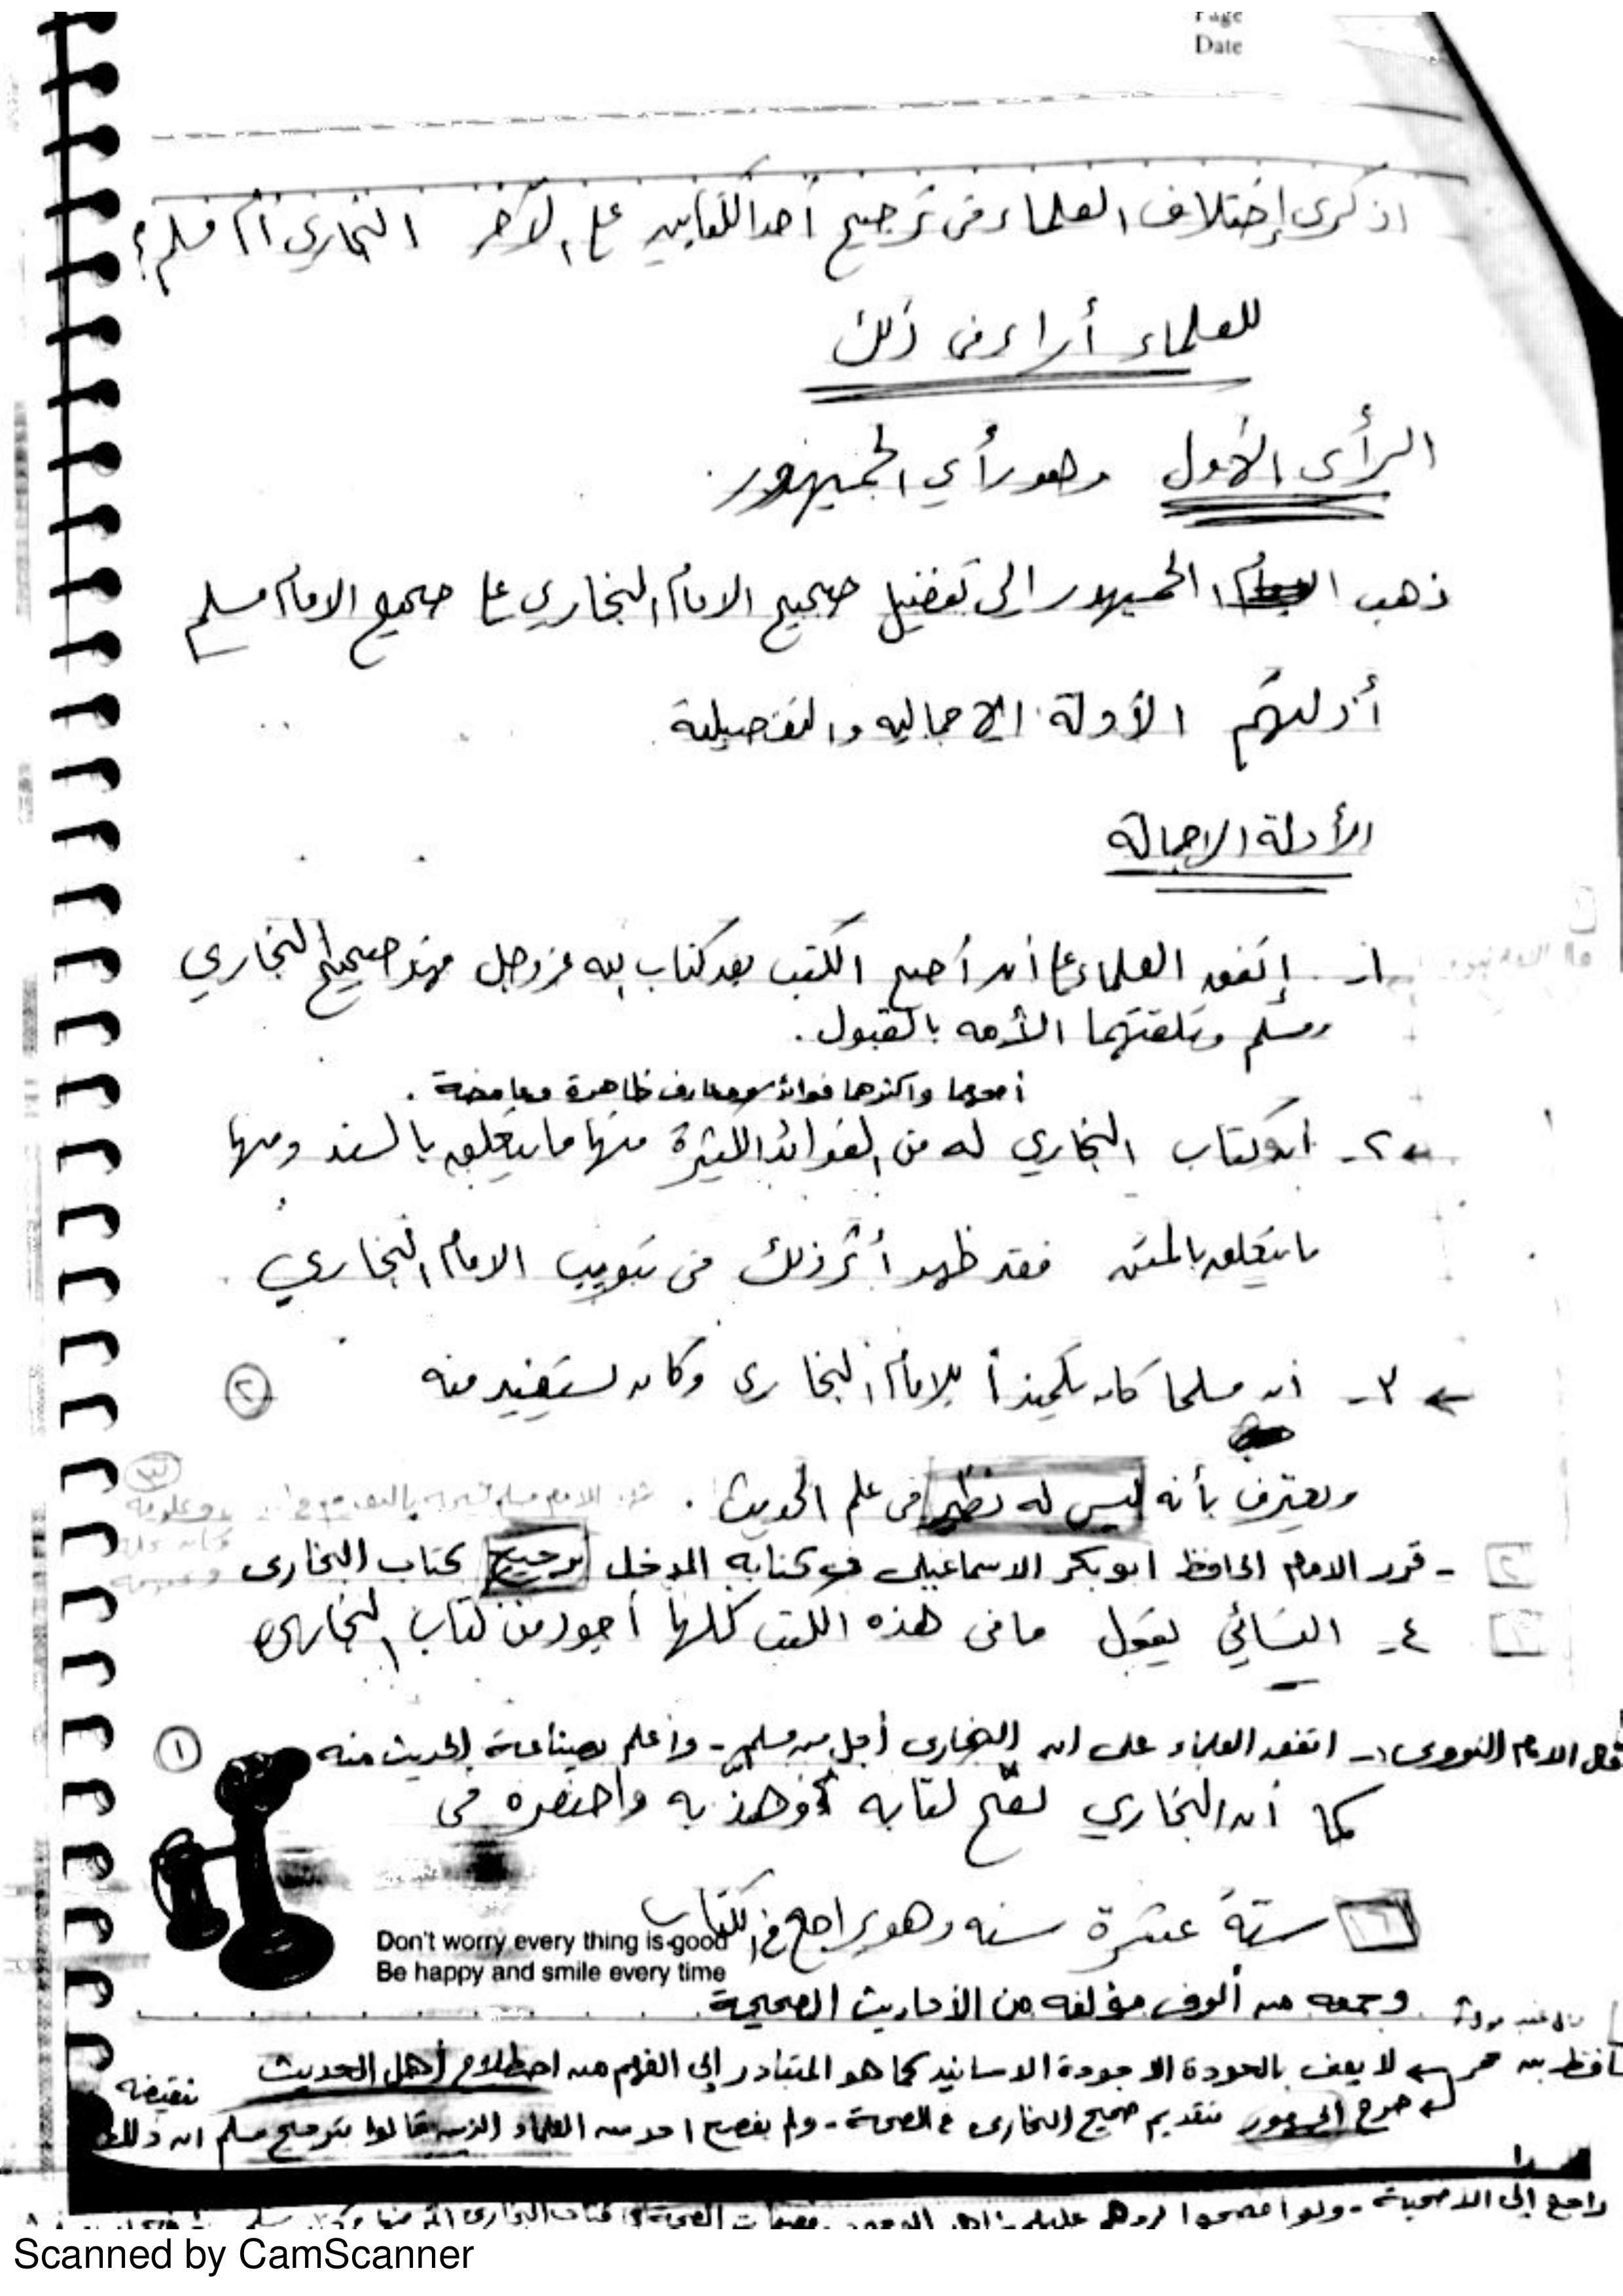 Page
Date
اذكرى إختلاف العلماء فى ترجيح أحد الكتابين على الآخر البخاري أم مسلم؟
للعلماء أراء فى ذلك
الرأى الأول وهو رأي الجمهور
ذهب الجمهور إلى تفضيل صحيح الامام البخاري على صحيح الامام مسلم
أدلتهم الأدلة الاجماليه والتفصيلية
الأدلة الاجمالة
١- إتفق العلماء على أن أصح الكتب بعد كتاب الله عز وجل فهو صحيح البخاري
ومسلم وتلقتهما الأمه بالقبول.
أصحهما واكثرهما فوائد ومعارف ظاهرة وغامضة.
٢- أن كتاب البخاري له من الفوائد الكثيرة منها ما يتعلق بالسند ومنها
ما يتعلق بالمتن فقد ظهر أثر ذلك فى تبويب الامام البخاري
← ٣- أن مسلما كان تلميذاً للإمام البخارى وكان يستفيد منه ②
ويعترف بأنه ليس له نظير فى علم الحديث.
٢ - قرر الامام الحافظ ابو بكر الاسماعيلى فى كتابه المدخل ترجيح كتاب البخارى
٤- النسائي يقول ما فى هذه الكتب كلها أجود من كتاب البخارى
قال الامام النووى:- اتفق العلماء على ان البخارى أجل من مسلم - وأعلم بصناعة الحديث منه ①
كما أن البخاري نقح كتابه وهذّبه واختصره فى
ستة عشرة سنه وهو راجح فى الكتاب
Don't worry every thing is good
Be happy and smile every time
وجمعه من ألوف مؤلفه من الأحاديث الصحيحة
لا يعنى بالجودة الا جودة الاسانيد كما هو المتبادر إلى الفهم من اصطلاح أهل الحديث
صرح الجمهور بتقديم صحيح البخارى فى الصحة - ولم يفصح احد من العلماء الذين قالوا بترجيح مسلم ان ذلك
راجع إلى الاصحية - ولو افصحوا لردهم عليهم
Scanned by CamScanner